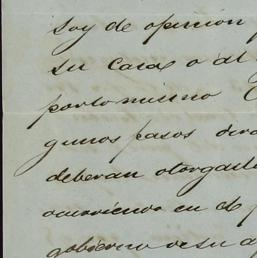 soy de opinion
su casa o al
por lo mismo
gunos pasos
deberan otorgar
ocurriendo en de
gobierno